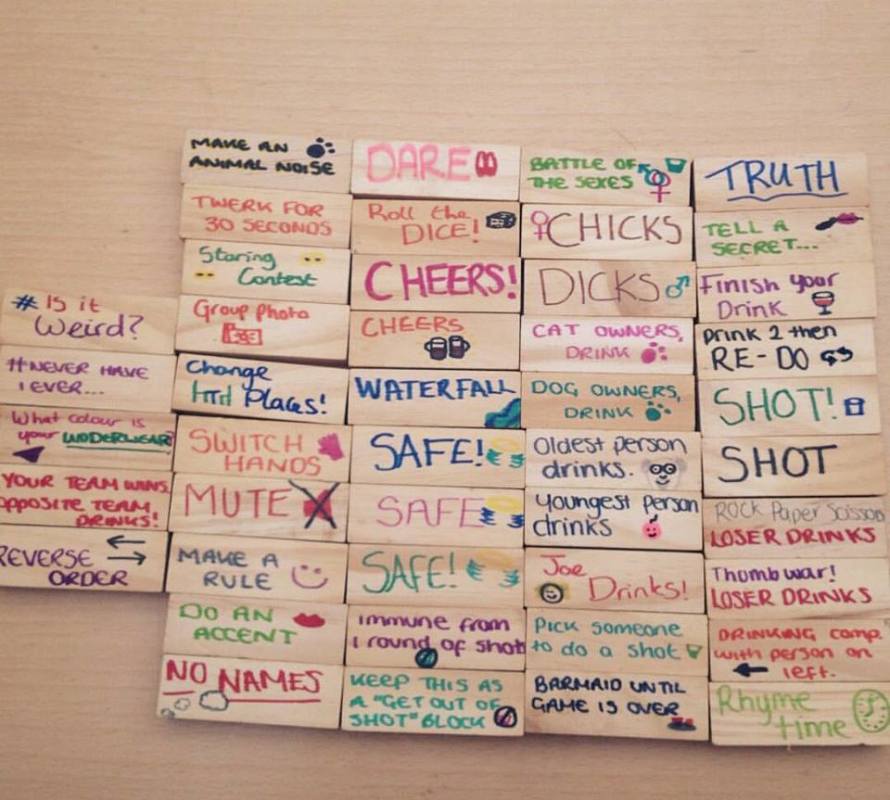 # IS it
Weird?
#NEVER HAVE
I EVER...
What colour is
your UNDERWEAR?
YOUR TEAM WINS,
OPPOSITE TEAM
DRINKS!
REVERSE
ORDER
MAKE AN
ANIMAL NOISE
TWERK FOR
30 SECONDS
Staring
Contest
Group Photo
Change
Places!
SWITCH
HANDS
MUTE
MAKE A
RULE
DO AN
ACCENT
NO NAMES
DARE
Roll the
DICE!
CHEERS!
CHEERS
WATERFALL
SAFE!
SAFE
SAFE!
Immune from
1 round of shots
KEEP THIS AS
A "GET OUT OF
SHOT" BLOCK
BATTLE OF
THE SEXES
CHICKS
DICKS
CAT OWNERS,
DRINK
DOG OWNERS,
DRINK
Oldest person
drinks.
Youngest person
drinks
Joe
Drinks!
Pick someone
to do a shot
BARMAID UNTIL
GAME IS OVER
TRUTH
TELL A
SECRET...
Finish your
Drink
Drink 2 then
RE-DO
SHOT!
SHOT
ROCK Paper Scissors
LOSER DRINKS
Thumb war!
LOSER DRINKS
DRINKING comp.
with person on
left.
Rhyme
time